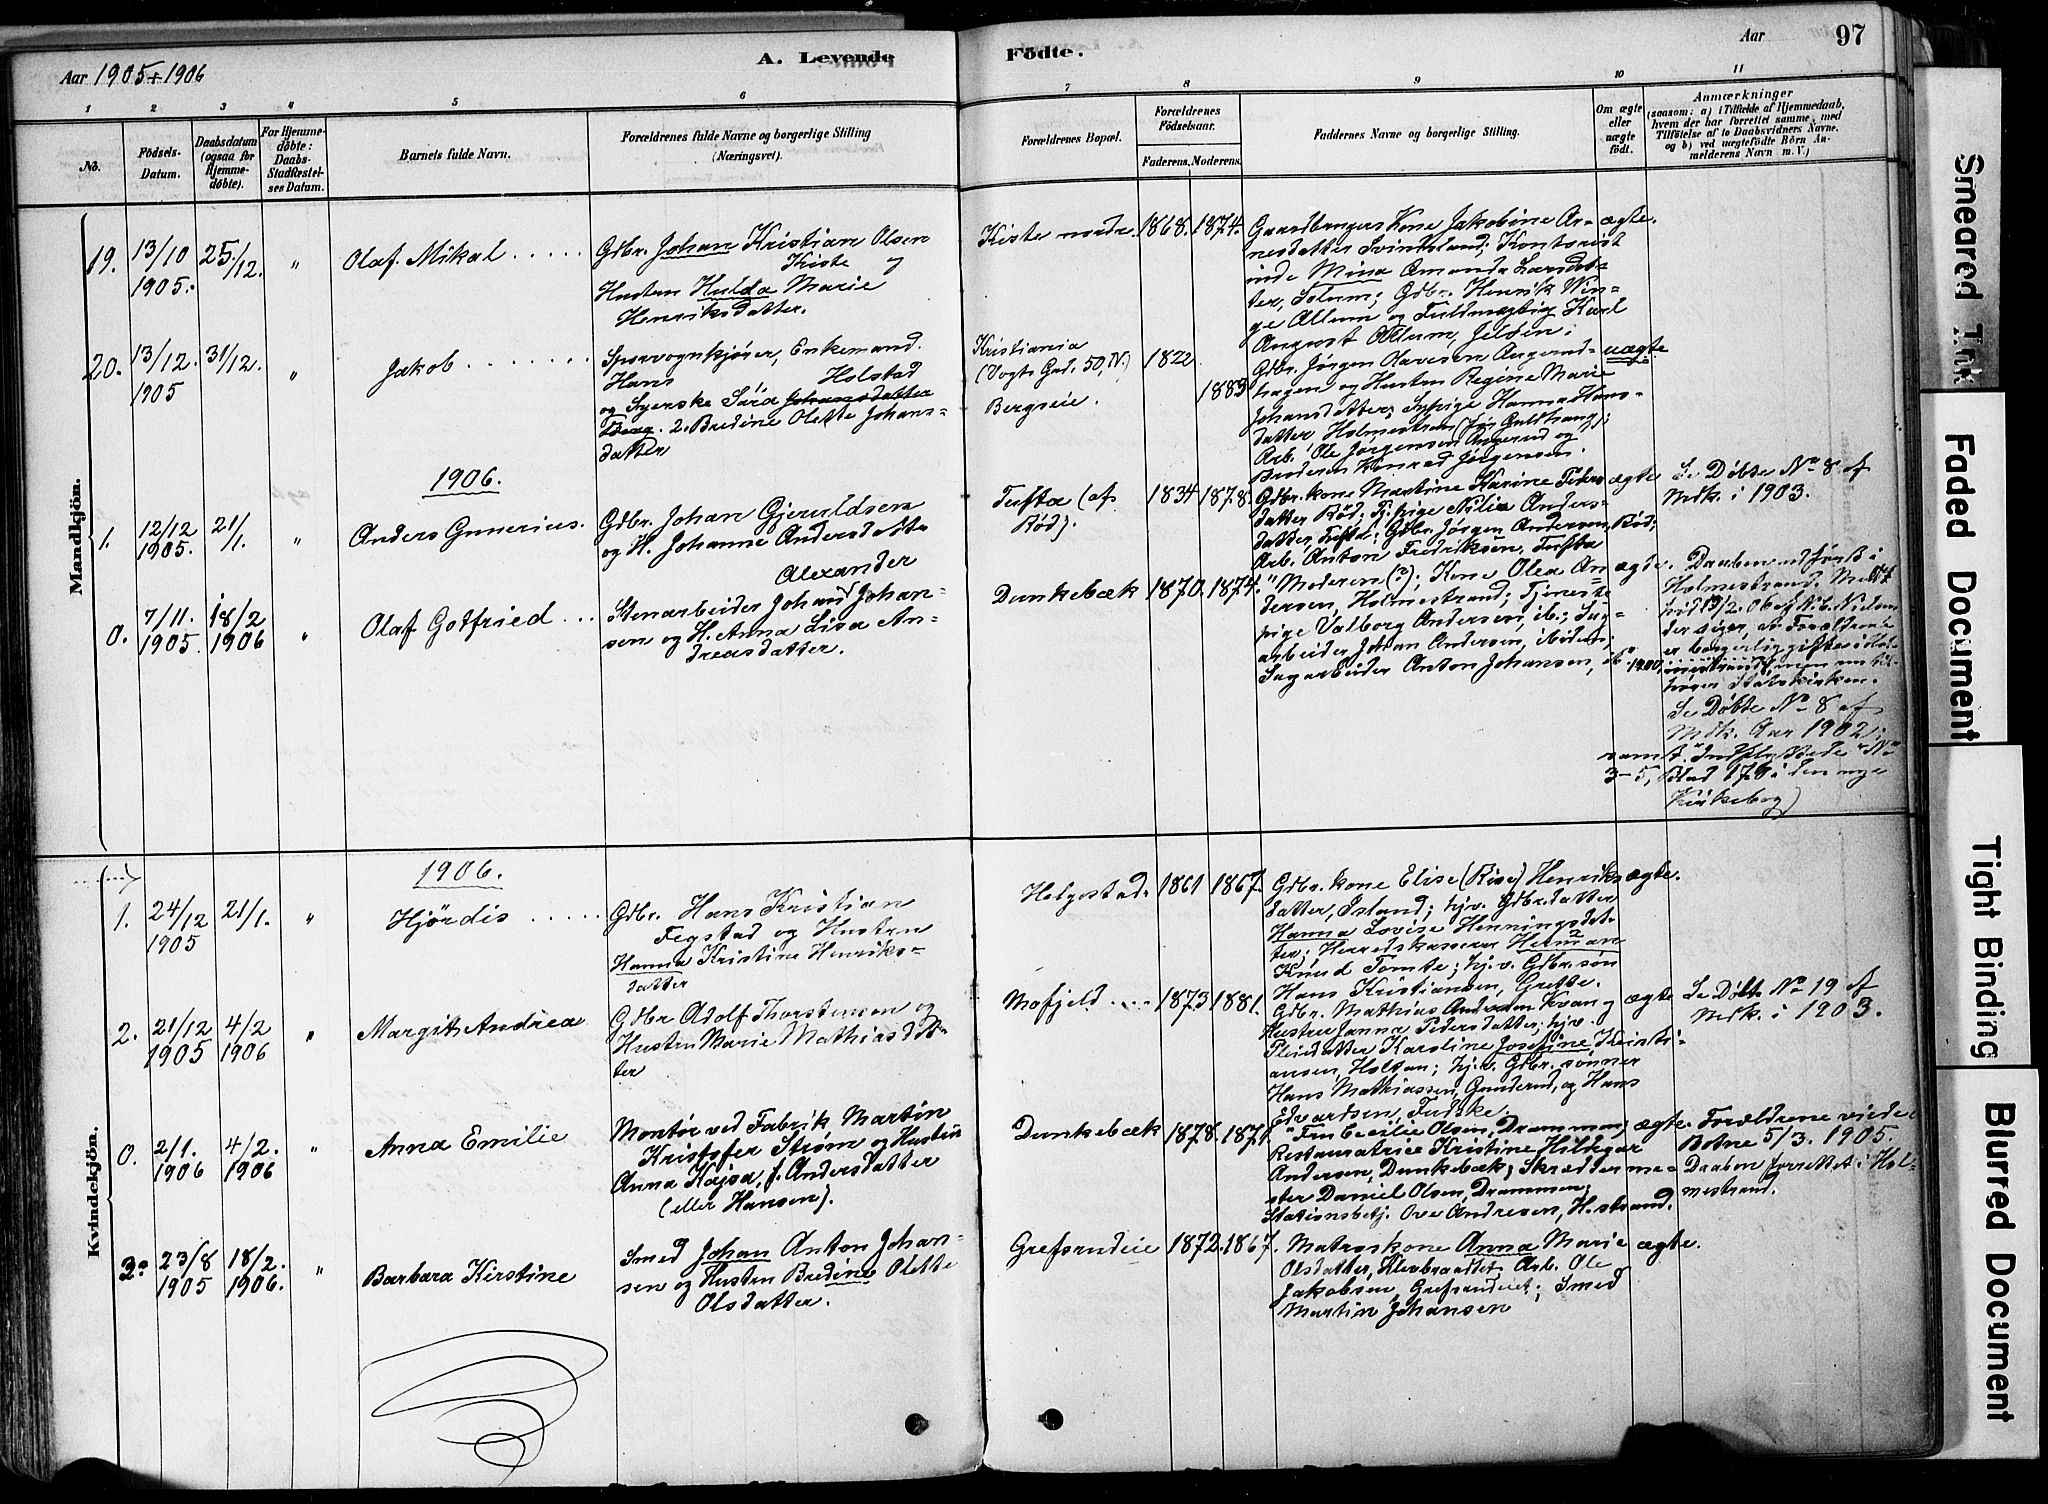 Aar 1905+1906
A. Levende
Födte.
Aar
97
1 2 3 4 5 6 7 8 9 10 11
No.
Födsels-Datum.
Daabsdatum (ogsaa for Hjemmedøbte).
For Hjemmedøbte: Daabs-Stadfæstelses Datum.
Barnets fulde Navn.
Forældrenes fulde Navne og borgerlige Stilling (Næringsvei).
Forældrenes Bopæl.
Forældrenes Födselsaar.
Faderens. Moderens.
Faddernes Navne og borgerlige Stilling.
Om ægte eller uægte födt.
Anmærkninger
(saasom: a) i Tilfælde af Hjemmedaab,
hvem der har forrettet samme, med
Tilföielse af to Daabsvidners Navne,
og b) ved uægtefödte Börn An-
melderens Navn m. V.)
Mandkjön.
19. 13/10 1905. 25/12. " Olaf Mikal
Gdbr. Johan Kristian Olsen
Kiste og
Hustru Hulda Marie
Henriksdatter.
Kiste nordre. 1868. 1874.
Gaardbrugers Kone Jakobine Ar-
nesdatter Svindsland; Kontorist
inde Mina Amanda Larsdat-
ter, Solum; Gdbr. Henrik Win-
ge Allum og Fuldmægtig Karl
August Allum, Jelöen;
ægte.
20. 13/12. 1905 31/12. " Jakob
Sporvognkjører, Enkemand
Hans Holstad
og Syerske Sara Johansdatter
Berg. 2. Bredine Olette Johans-
datter
Kristiania
(Vogts Gad. 50, IV.)
Bergseie.
1822
1883
Gdbr. Jørgen Olavesen Angerud-
hagen og Hustru Regine Marie
Johansdatter; Sypige Hanna Hans-
datter Holmestrand
Arb. Ole Jørgensen Angerud og
Broderen Konrad Jørgensen.
uægte
1906.
1. 12/12 1905. 21/1. " Anders Gunerius.
Gdbr. Johan Gjeruldsen
og H. Johanne Andersdatter
Tufta (af
Rød).
1834 1878.
Gdbr. kone Martine Karine Peders-
datter Rød; Tj. pige Nilia Anders-
datter, Tufte; Gdbr. Jørgen Andersen, Rød;
Arb. Anton Fredriksen, Tufta
ægte
Se Døbte No 8 af
Mdk. i 1903.
0. 7/11. 1905. 18/2 1906 " Olaf Gotfried
Alexander
Stenarbeider Johan Johan-
sen og H. Anna Lisa An-
dreasdatter.
Dunkebæk 1870. 1874.
" Moderen (?); Kone Olea An-
dersen, Holmestrand; Tjeneste-
pige Valborg Andersen, ib.; Sag-
arbeider Johan Andersen, ibidem;
Sagarbeider Anton Johansen, ib "
ægte.
Daaben udført i
Holmestrand.
1900,
Se Døbte No 8 af
Mdk. Aar 1902;
samt "Indflyttede" No
3-5, Blad 176 i den nye
Kirkebog)
Kvindekjön.
1906.
1. 24/12 1905 21/1. " Hjördis
Gdbr. Hans Kristian
Fegstad og Hustru
Hanna Kristine Henriks-
datter
Helgestad. 1861 1867.
Gdbr. kone Elise (Rise) Henriks-
datter, Island; hjv. Gdbr. datter
Hanna Lovise Henningsdat-
ter; Herredskasserer Herman
Knud Tomte; hj. v. Gdbr. søn
Hans Kristiansen, Grette.
ægte.
2. 21/12 1905 4/2 1906 " Margit Andrea
Gdbr Adolf Thorstensen og
Hustru Marie Mathiasdat-
ter
Mofjeld 1873 1881.
Gdbr. Mathias Andersen Kvan og
Hustru Janna Pedersdatter; hjv.
Pleiedatter Karoline Josefine Kristi-
ansen, Holtan; hj. v. Gdbr. sønner
Hans Mathiassen, Gunderud, og Hans
Edvardsen, Fudske.
ægte
Se Døbte No 19 af
Mdk. i 1903.
0. 2/1. 1906 4/2. 1906 " Anna Emilie
Montør ved Fabrik Martin
Kristofer Strøm og Hustru
Anna Kajsa, f. Andersdatter
(eller Hansen).
Dunkebæk 1878. 1871.
" Fru Cecilie Olsen, Drammen;
Restauratrice Kristine Hildegar
Andersen, Dunkebæk; Skræddersme-
ster Daniel Olsen, Drammen;
Stationsbetj. Ove Andresen, H.strand.
ægte.
Forældrene viede
Botne 5/3. 1905.
Daaben forrettet i Hol-
mestrand.
3. 23/8 1905 18/2. 1906. " Barbara Kirstine
Smed Johan Anton Johan-
sen og Hustru Bredine Olette
Olsdatter.
Grefsrudeie 1872. 1867.
Matroskone Anna Marie
Olsdatter, Klevbrandtet Arb. Ole
Jakobsen, Grefsrudeiet; Smed
Martin Johansen
ægte.
Smeared Ink
Faded Document
Tight Binding
Blurred Document